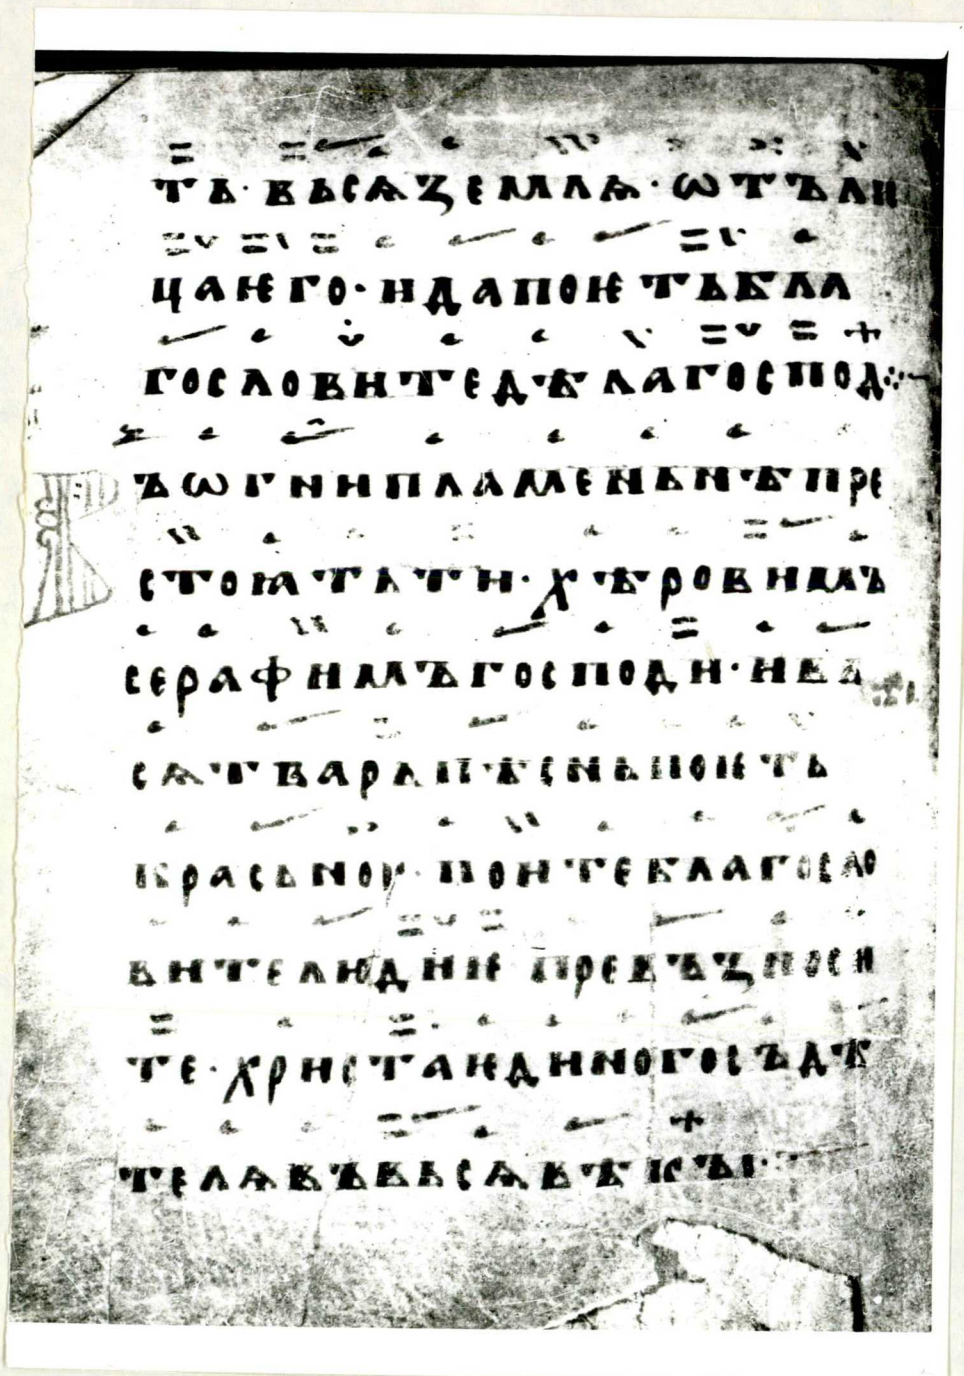 ть· вьсѧ землѧ· ѡтъ ли
ца ѥго· и да поѥть бла
гословите дѣла господ⁘
ъ ѡгни пламеньнѣ пре
стоꙗтъ ти· хѣровимъ
серафимъ господи· и вь
сѧ тварь пѣснь поѥть
красьноу· поите благосло
вите людиѥ превъзноси
те· христа ѥдиного съдѣ
телѧ въ вьсѧ вѣкъі·